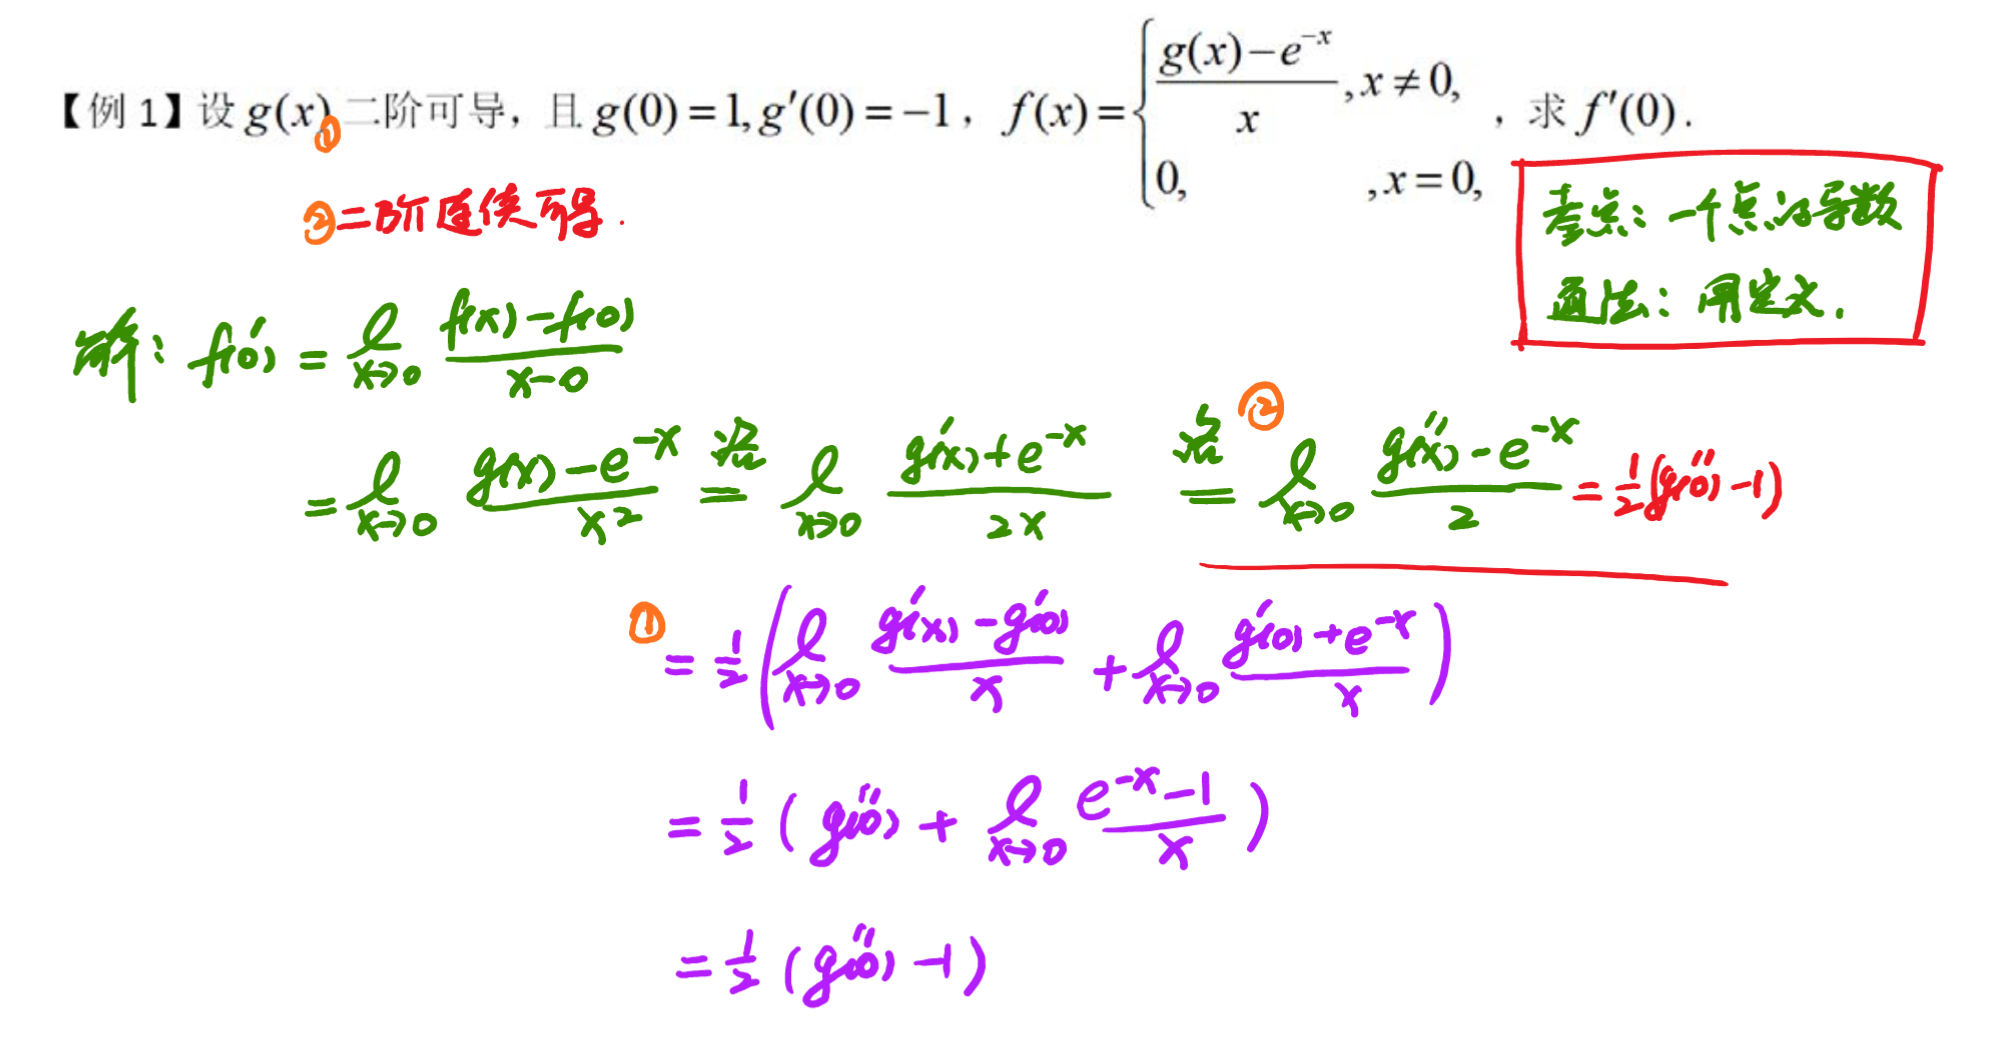 【例 1】设 g(x) 二阶可导，且 g(0)=1, g′(0)=−1，f(x)={ (g(x)−e^{−x})/x , x≠0, 0, , x=0, ，求 f′(0).
①
②二阶连续可导.
考点：一个点的导数
通法：用定义.
解：f′(0) = l_{x→0} (f(x)−f(0))/(x−0)
= l_{x→0} (g(x)−e^{−x})/x² 洛= l_{x→0} (g′(x)+e^{−x})/(2x) 洛= ② l_{x→0} (g″(x)−e^{−x})/2 = 1/2(g″(0)−1)
① = 1/2( l_{x→0} (g′(x)−g′(0))/x + l_{x→0} (g′(0)+e^{−x})/x )
= 1/2 ( g″(0) + l_{x→0} (e^{−x}−1)/x )
= 1/2 (g″(0)−1)